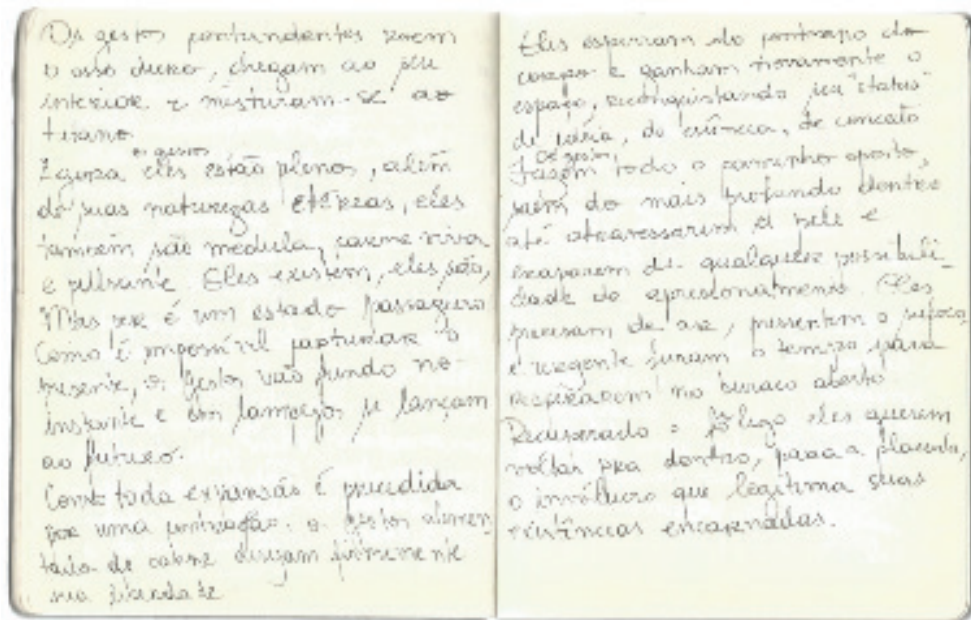 Os gestos contundentes roem
o osso duro, chegam ao seu
interior e misturam-se ao
tirano.
Agora eles os gestos estão plenos, além
de suas naturezas etéreas, eles
também são medula, carne viva
e pulsante. Eles existem, eles são,
Mas ser é um estado passageiro
Como é impossível capturar o
presente, os gestos vão fundo no
instante e em lampejos se lançam
ao futuro.
Como toda expansão é precedida
por uma contração, os gestos
de carne desejam
sua
Eles espirram do do
corpo e ganham novamente o
espaço, reconquistando seu "status"
de idéia, de essência, de conceito
Os gestos Fazem todo o caminho oposto,
saem do mais profundo dentro
até atravessarem a pele e
escaparem de qualquer possibili-
dade de aprisionamento. Eles
precisam de ar, pressentem o sufoco,
é urgente furam o tempo para
respirarem no buraco aberto
Recuperado o fôlego eles querem
voltar pra dentro, para a placenta,
o invólucro que legitima suas
existências encarnadas.